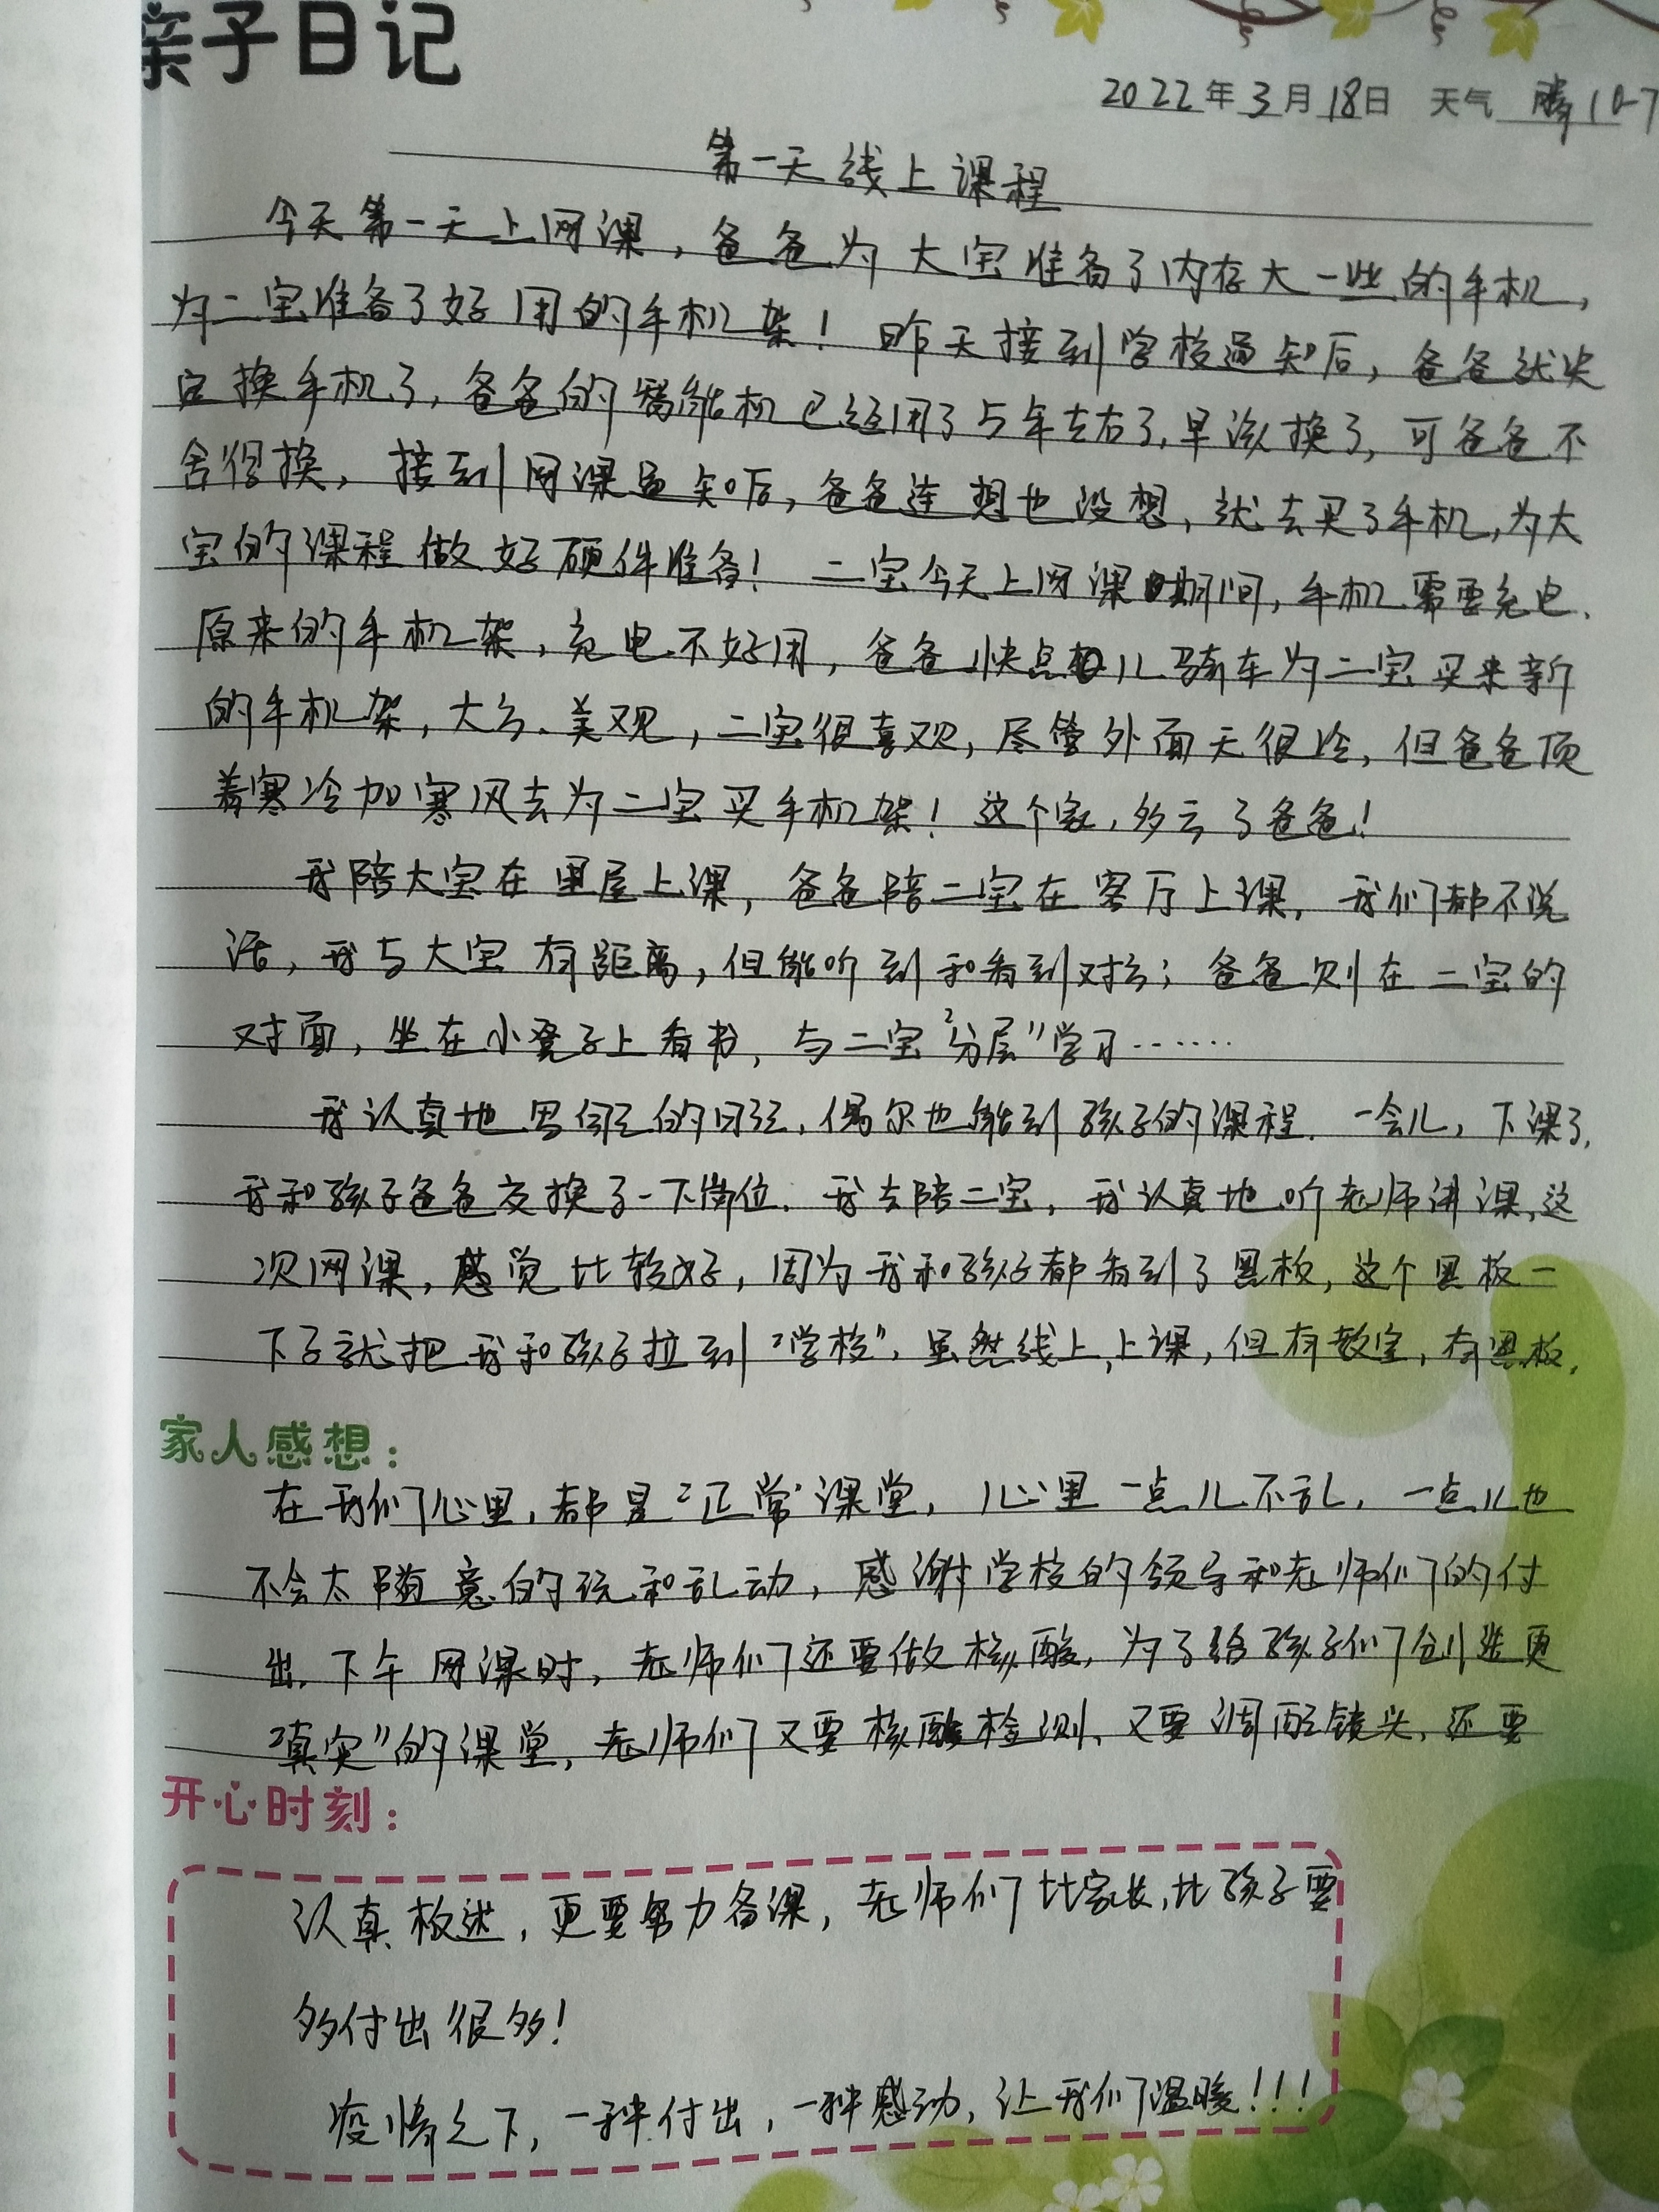 亲子日记
2022年3月18日 天气 10-7
第一天线上课程
今天第一天上网课，爸爸为大宝准备了内存大一些的手机，
为二宝准备了好用的手机架！昨天接到学校通知后，爸爸就决
定换手机了，爸爸的智能机已经用了5年左右了，早该换了，可爸爸不
舍得换，接到网课通知后，爸爸连想也没想，就去买了手机，为大
宝的课程做好硬件准备！二宝今天上网课期间，手机需要充电，
原来的手机架，充电不好用，爸爸快点儿骑车为二宝买来新
的手机架，大方、美观，二宝很喜欢，尽管外面天很冷，但爸爸顶
着寒冷加寒风去为二宝买手机架！这个家，多亏了爸爸！
我陪大宝在里屋上课，爸爸陪二宝在客厅上课，我们都不说
话，我与大宝有距离，但能听到和看到对方；爸爸则在二宝的
对面，坐在小凳子上看书，与二宝“分层”学习……
我认真地写自己的日记，偶尔也能到孩子的课程．一会儿，下课了，
我和孩子爸爸交换了一下岗位．我去陪二宝，我认真地听老师讲课，这
次网课，感觉比较好，因为我和孩子都看到了黑板，这个黑板一
下子就把我和孩子拉到“学校”，虽然线上上课，但有教室，有黑板，
家人感想：
在我们心里，都是“正常”课堂，心里一点儿不乱，一点儿也
不会太随意的玩和乱动，感谢学校的领导和老师们的付
出．下午网课时，老师们还要做核酸，为了给孩子们创造更
“真实”的课堂，老师们又要核酸检测、又要调配镜头，还要
开心时刻：
认真板述，更要努力备课，老师们比家长，比孩子要
多付出很多！
疫情之下，一种付出，一种感动，让我们温暖！！！